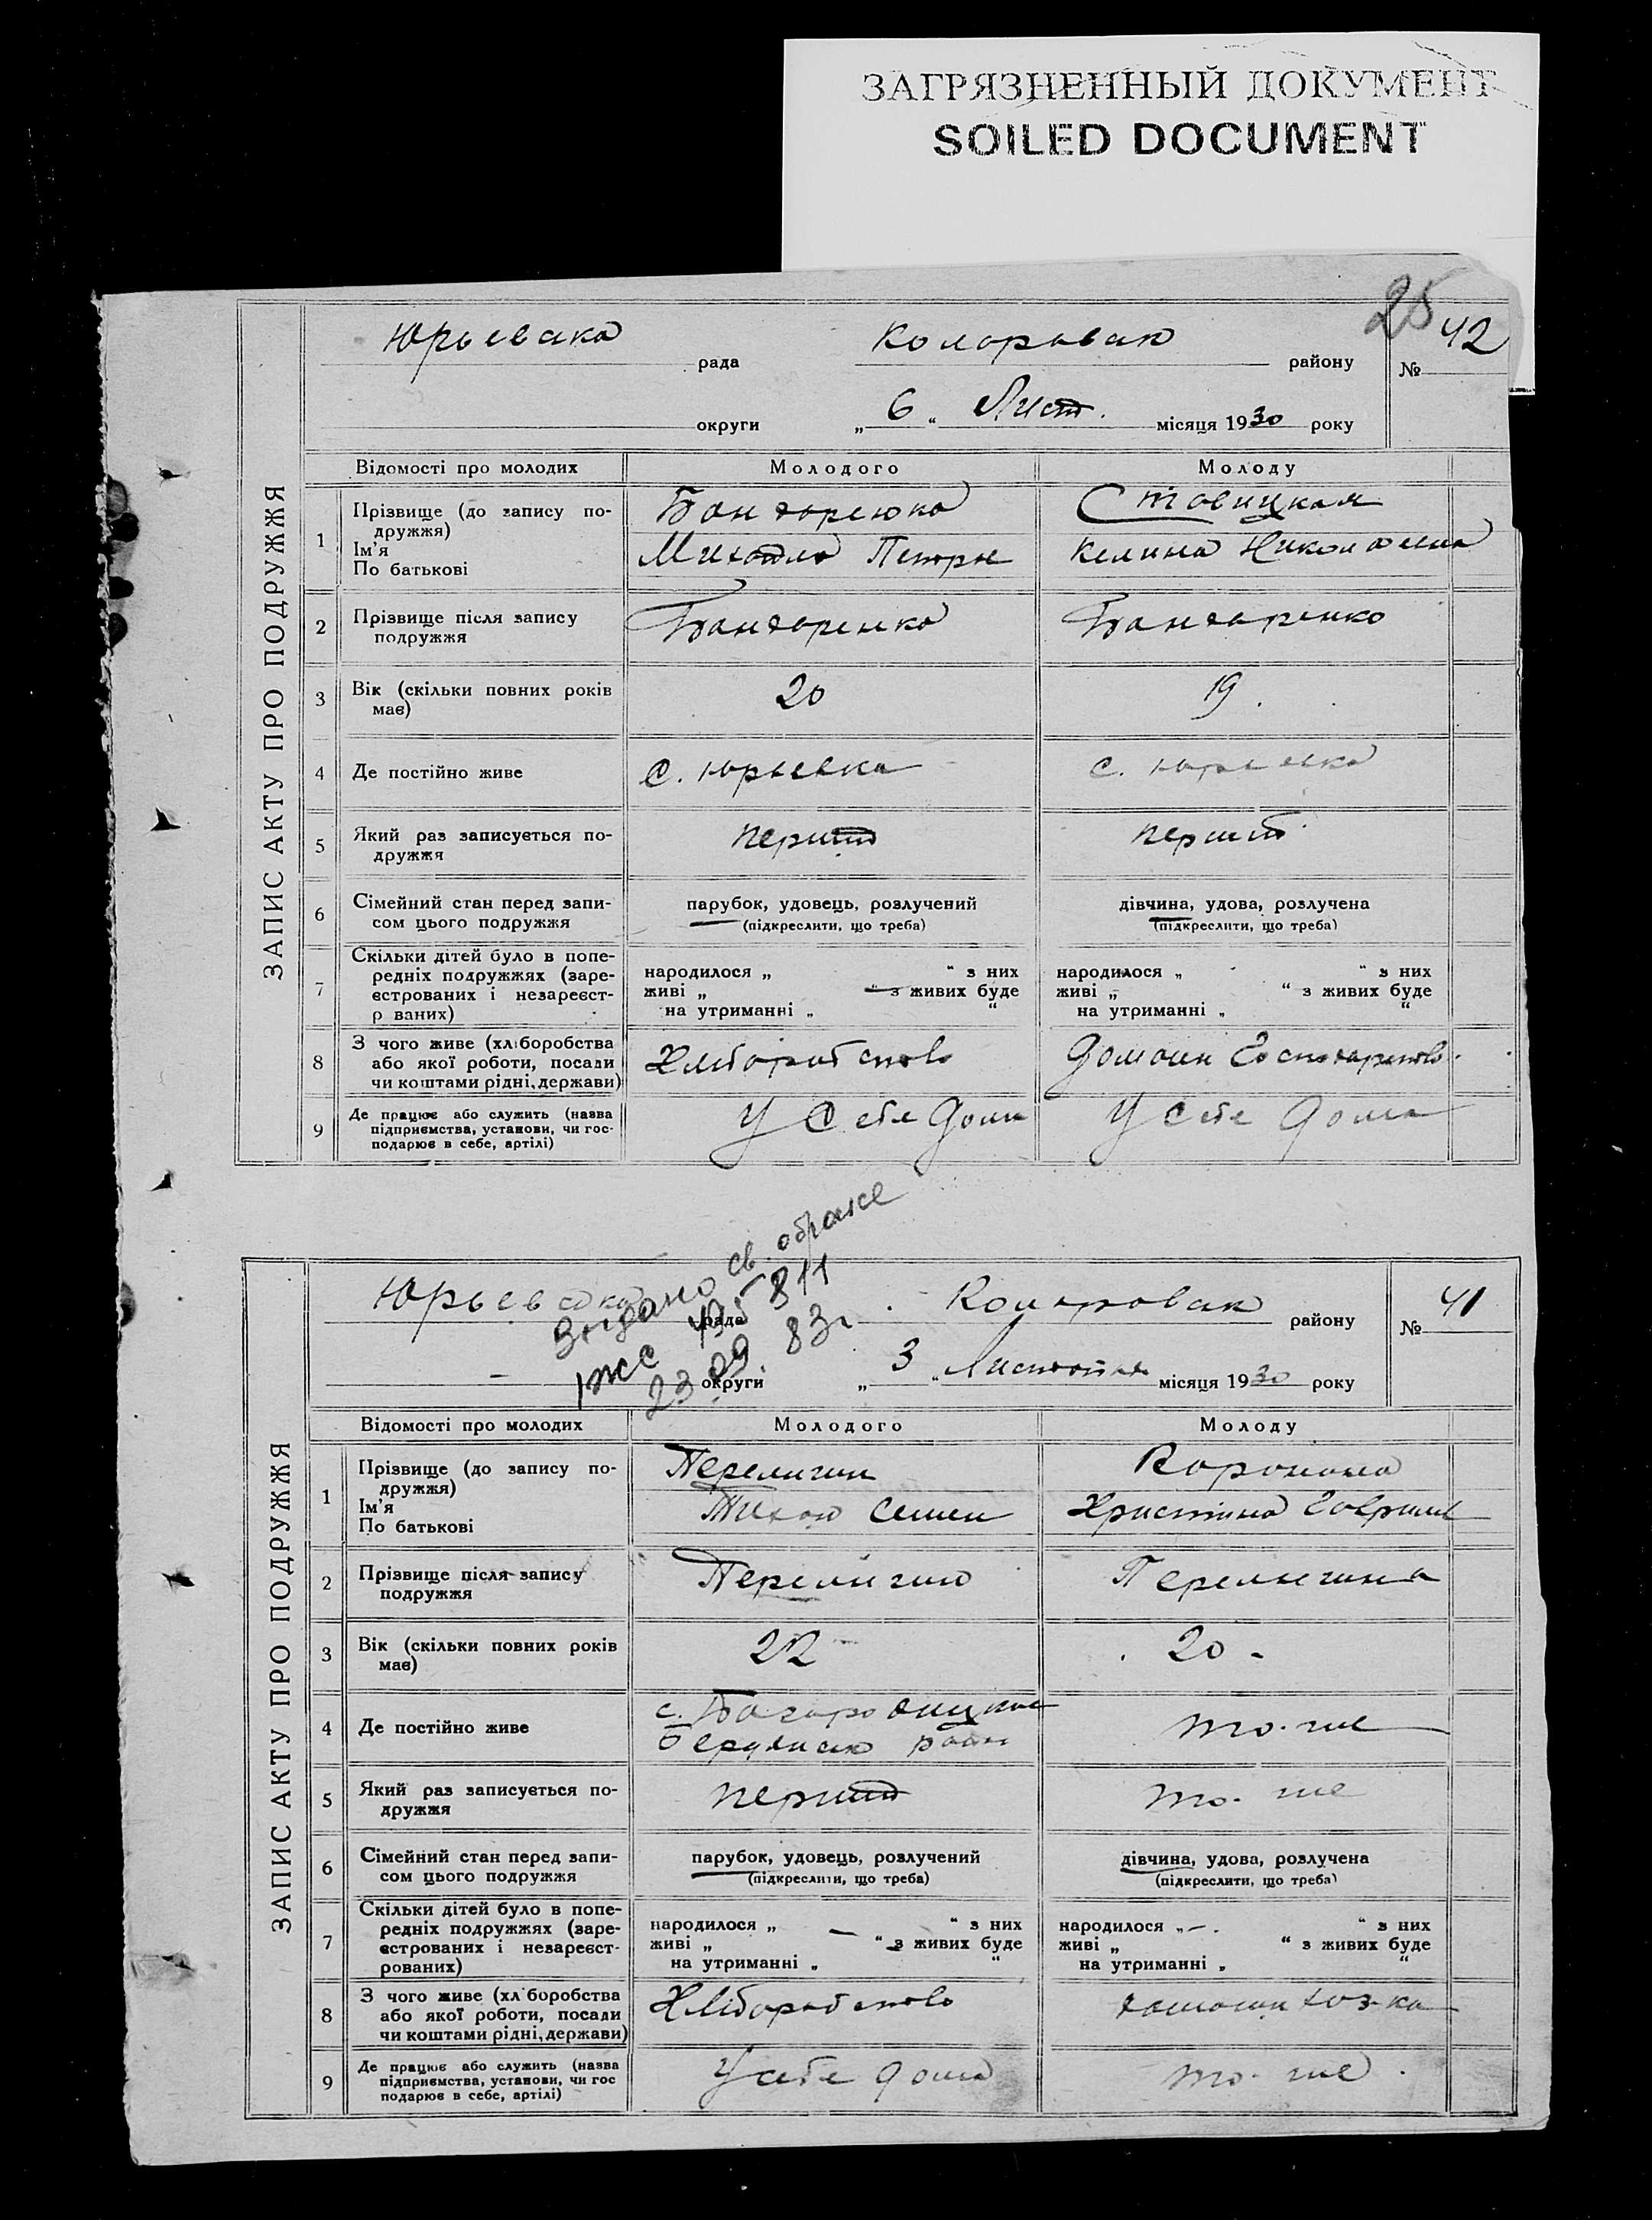 ЗАГРЯЗНЕННЫЙ ДОКУМЕНТ
SOILED DOCUMENT
25
ЗАПИС АКТУ ПРО ПОДРУЖЖЯ
Юрьевска рада района № 42
округи „ 6 “ Лист. місяця 1930 року
Відомості про молодих Молодого Молоду
1 Прізвище (до запису подружжя) Ставицкая
Ім'я
По батькові Михайло Петров Келина
2 Прізвище після запису
подружжя Бондаренко Бондаренко
3 Вік (скільки повних років
має) 20 19.
4 Де постійно живе с. Юрьевка с. Юрьевка
5 Який раз записується по-
дружжя перший перший
6 Сімейний стан перед запи-
сом цього подружжя парубок, удовець, розлучений дівчина, удова, розлучена
(підкреслити, що треба) (підкреслити, що треба)
7 Скільки дітей було в попе-
редніх подружжях (заре-
єстрованих і незареєст-
р ваних)
народилося „ “ з них народилося „ “ з них
живі „ “ з живих буде живі „ “ з живих буде
на утриманні „ “ на утриманні „ “
8 З чого живе (хліборобства
або якої роботи, посади
чи коштами рідні, держави) Хліборобство
9 Де працює або служить (назва
підприємства, установи, чи гос-
подарює в себе, артілі) У себе дома У себе дома
св. о браке
23.09.83г
ЗАПИС АКТУ ПРО ПОДРУЖЖЯ
Юрьевска рада району № 41
округи „ 3 “ місяця 1930 року
Відомості про молодих Молодого Молоду
1 Прізвище (до запису по-
дружжя) Перелигин Воронина
Ім'я
По батькові Тихон Семен Христина Гаврил
2 Прізвище після запису
подружжя Перелигин Перелигина
3 Вік (скільки повних років
має) 22 20
4 Де постійно живе с. то-же
5 Який раз записується по-
дружжя перший то-же
6 Сімейний стан перед запи-
сом цього подружжя парубок, удовець, розлучений дівчина, удова, розлучена
(підкреслити, що треба) (підкреслити, що треба)
7 Скільки дітей було в попе-
редніх подружжях (заре-
єстрованих і незареєст-
рованих)
народилося „ — “ з них народилося „ — “ з них
живі „ “ з живих буде живі „ “ з живих буде
на утриманні „ “ на утриманні „ “
8 З чого живе (хліборобства
або якої роботи, посади
чи коштами рідні, держави) Хліборобство
9 Де працює або служить (назва
підприємства, установи, чи гос
подарює в себе, артілі) У себе дома то-же